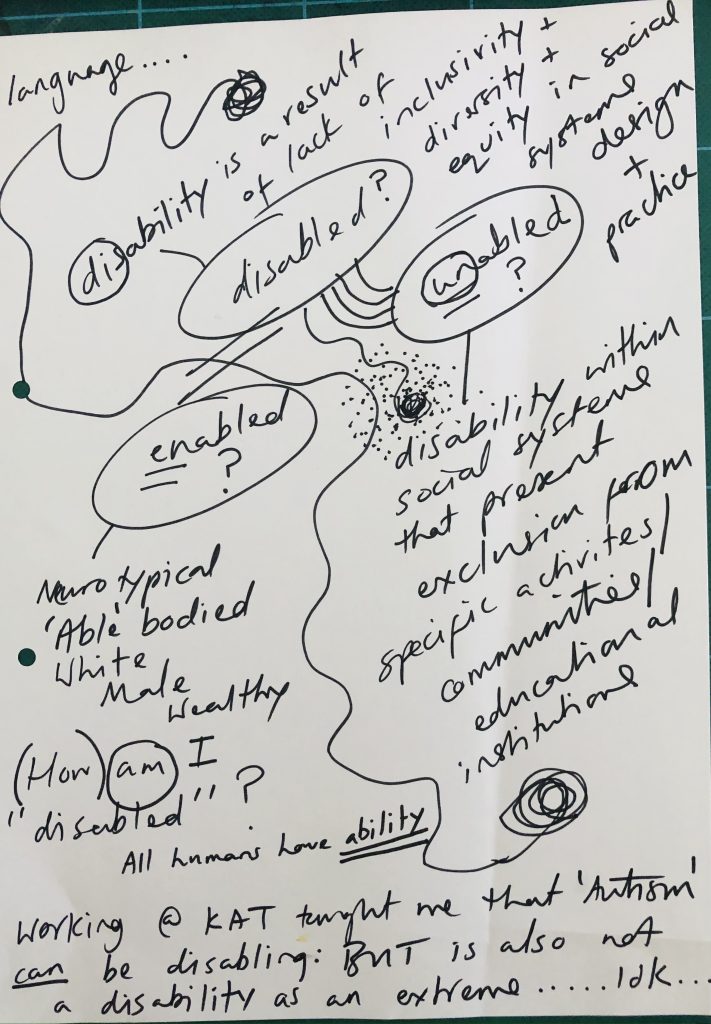 language....
disability is a result
of lack of
inclusivity +
diversity +
equity in social
systems
design
+
practice
disabled?
unabled
?
enabled
?
disability within
social systems
that present
exclusion from
specific activites/
communities/
educational
institutions
Nurotypical
'Able' bodied
White
Male
Wealthy
(How) am I
"disabled"?
All humans have ability
Working @ KAT taught me that 'Autism'
can be disabling: BUT is also not
a disability as an extreme ..... Idk...